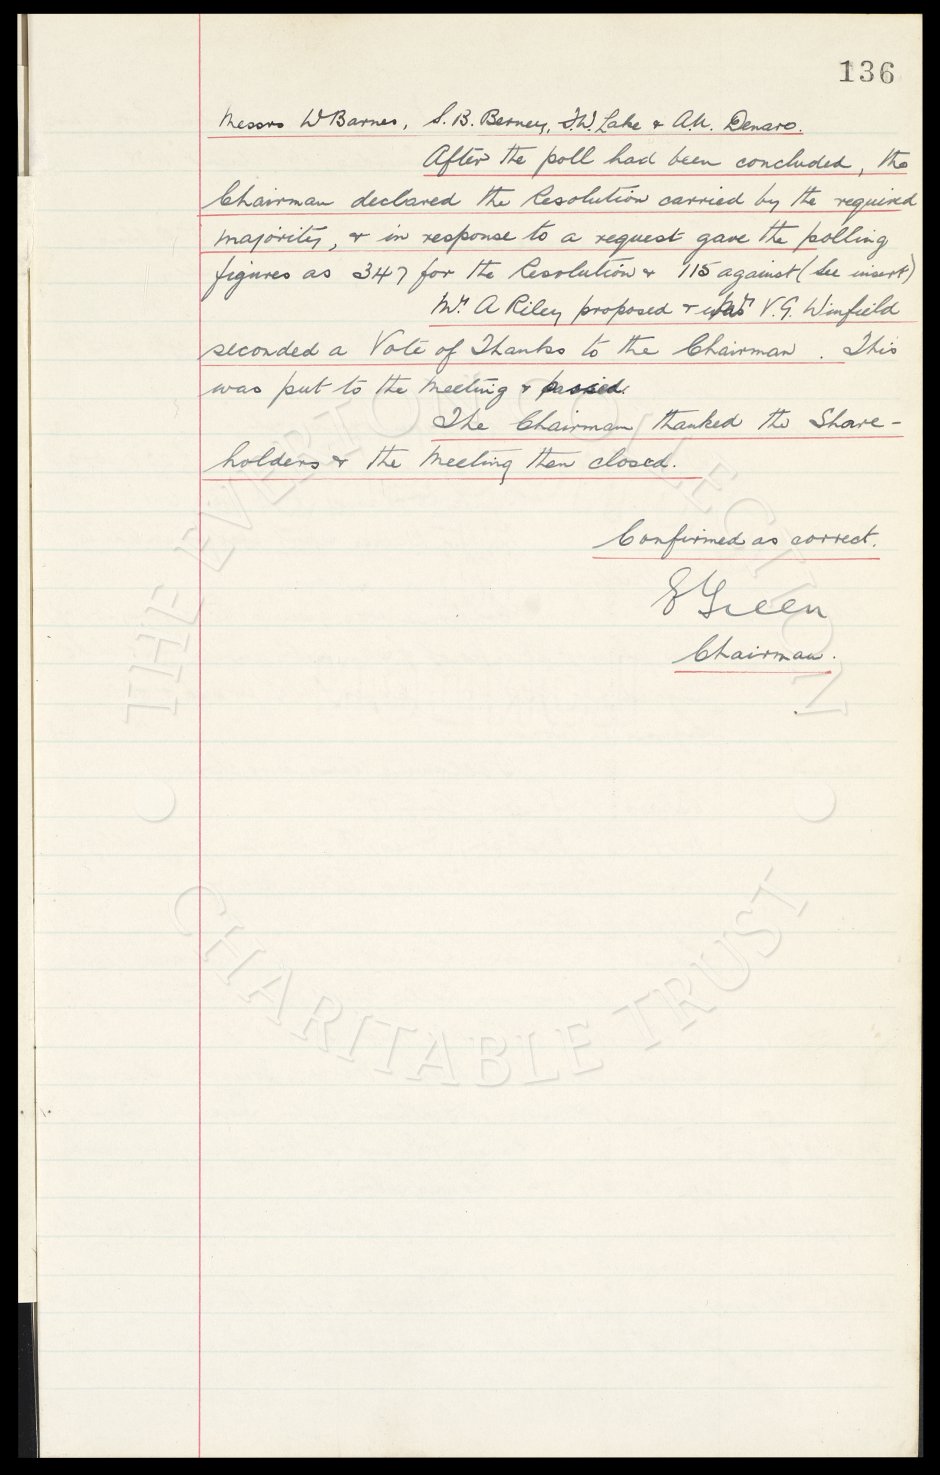 136
Messrs W Barnes, S.B. Berney, F.W. Lake & A.N. Denaro.
After the poll had been concluded, the
Chairman declared the Resolution carried by the required
majority, & in response to a request gave the polling
figures as 347 for the Resolution & 115 against (See insert)
Mr. A Riley proposed & Mr V.G. Winfield
seconded a Vote of Thanks to the Chairman. This
was put to the Meeting & passed.
The Chairman thanked the Share-
holders & the Meeting then closed.
Confirmed as correct.
E Green
Chairman.
THE EVERTON COLLECTION
CHARITABLE TRUST